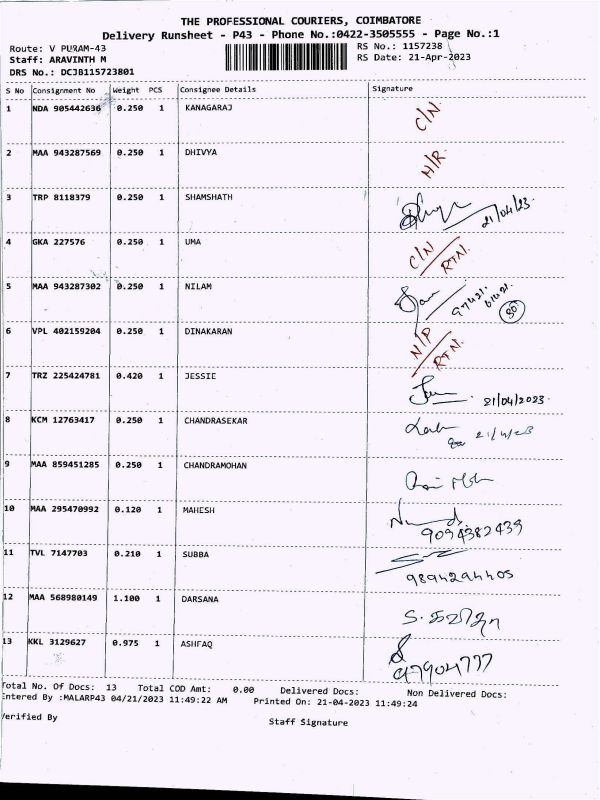 THE PROFESSIONAL COURIERS, COIMBATORE
Delivery Runsheet - P43 - Phone No.:0422-3505555 - Page No.:1
Route: V PURAM-43 RS No.: 1157238
Staff: ARAVINTH M RS Date: 21-Apr-2023
DRS No.: DCJB115723801
S No Consignment No Weight PCS Consignee Details Signature
1 NDA 905442636 0.250 1 KANAGARAJ C/N
2 MAA 943287569 0.250 1 DHIVYA H/R
3 TRP 8118379 0.250 1 SHAMSHATH 21/04/23.
4 GKA 227576 0.250 1 UMA C/N RTN.
5 MAA 943287302 0.250 1 NILAM
6 VPL 402159204 0.250 1 DINAKARAN N/P RTN.
7 TRZ 225424781 0.420 1 JESSIE 21/04/2023.
8 KCM 12763417 0.250 1 CHANDRASEKAR 21/4/23
9 MAA 859451285 0.250 1 CHANDRAMOHAN
10 MAA 295470992 0.120 1 MAHESH 9094382439
11 TVL 7147703 0.210 1 SUBBA 9894294405
12 MAA 568980149 1.100 1 DARSANA
13 KKL 3129627 0.975 1 ASHFAQ
Total No. Of Docs: 13 Total COD Amt: 0.00 Delivered Docs: Non Delivered Docs:
Entered By :MALARP43 04/21/2023 11:49:22 AM Printed On: 21-04-2023 11:49:24
Verified By Staff Signature